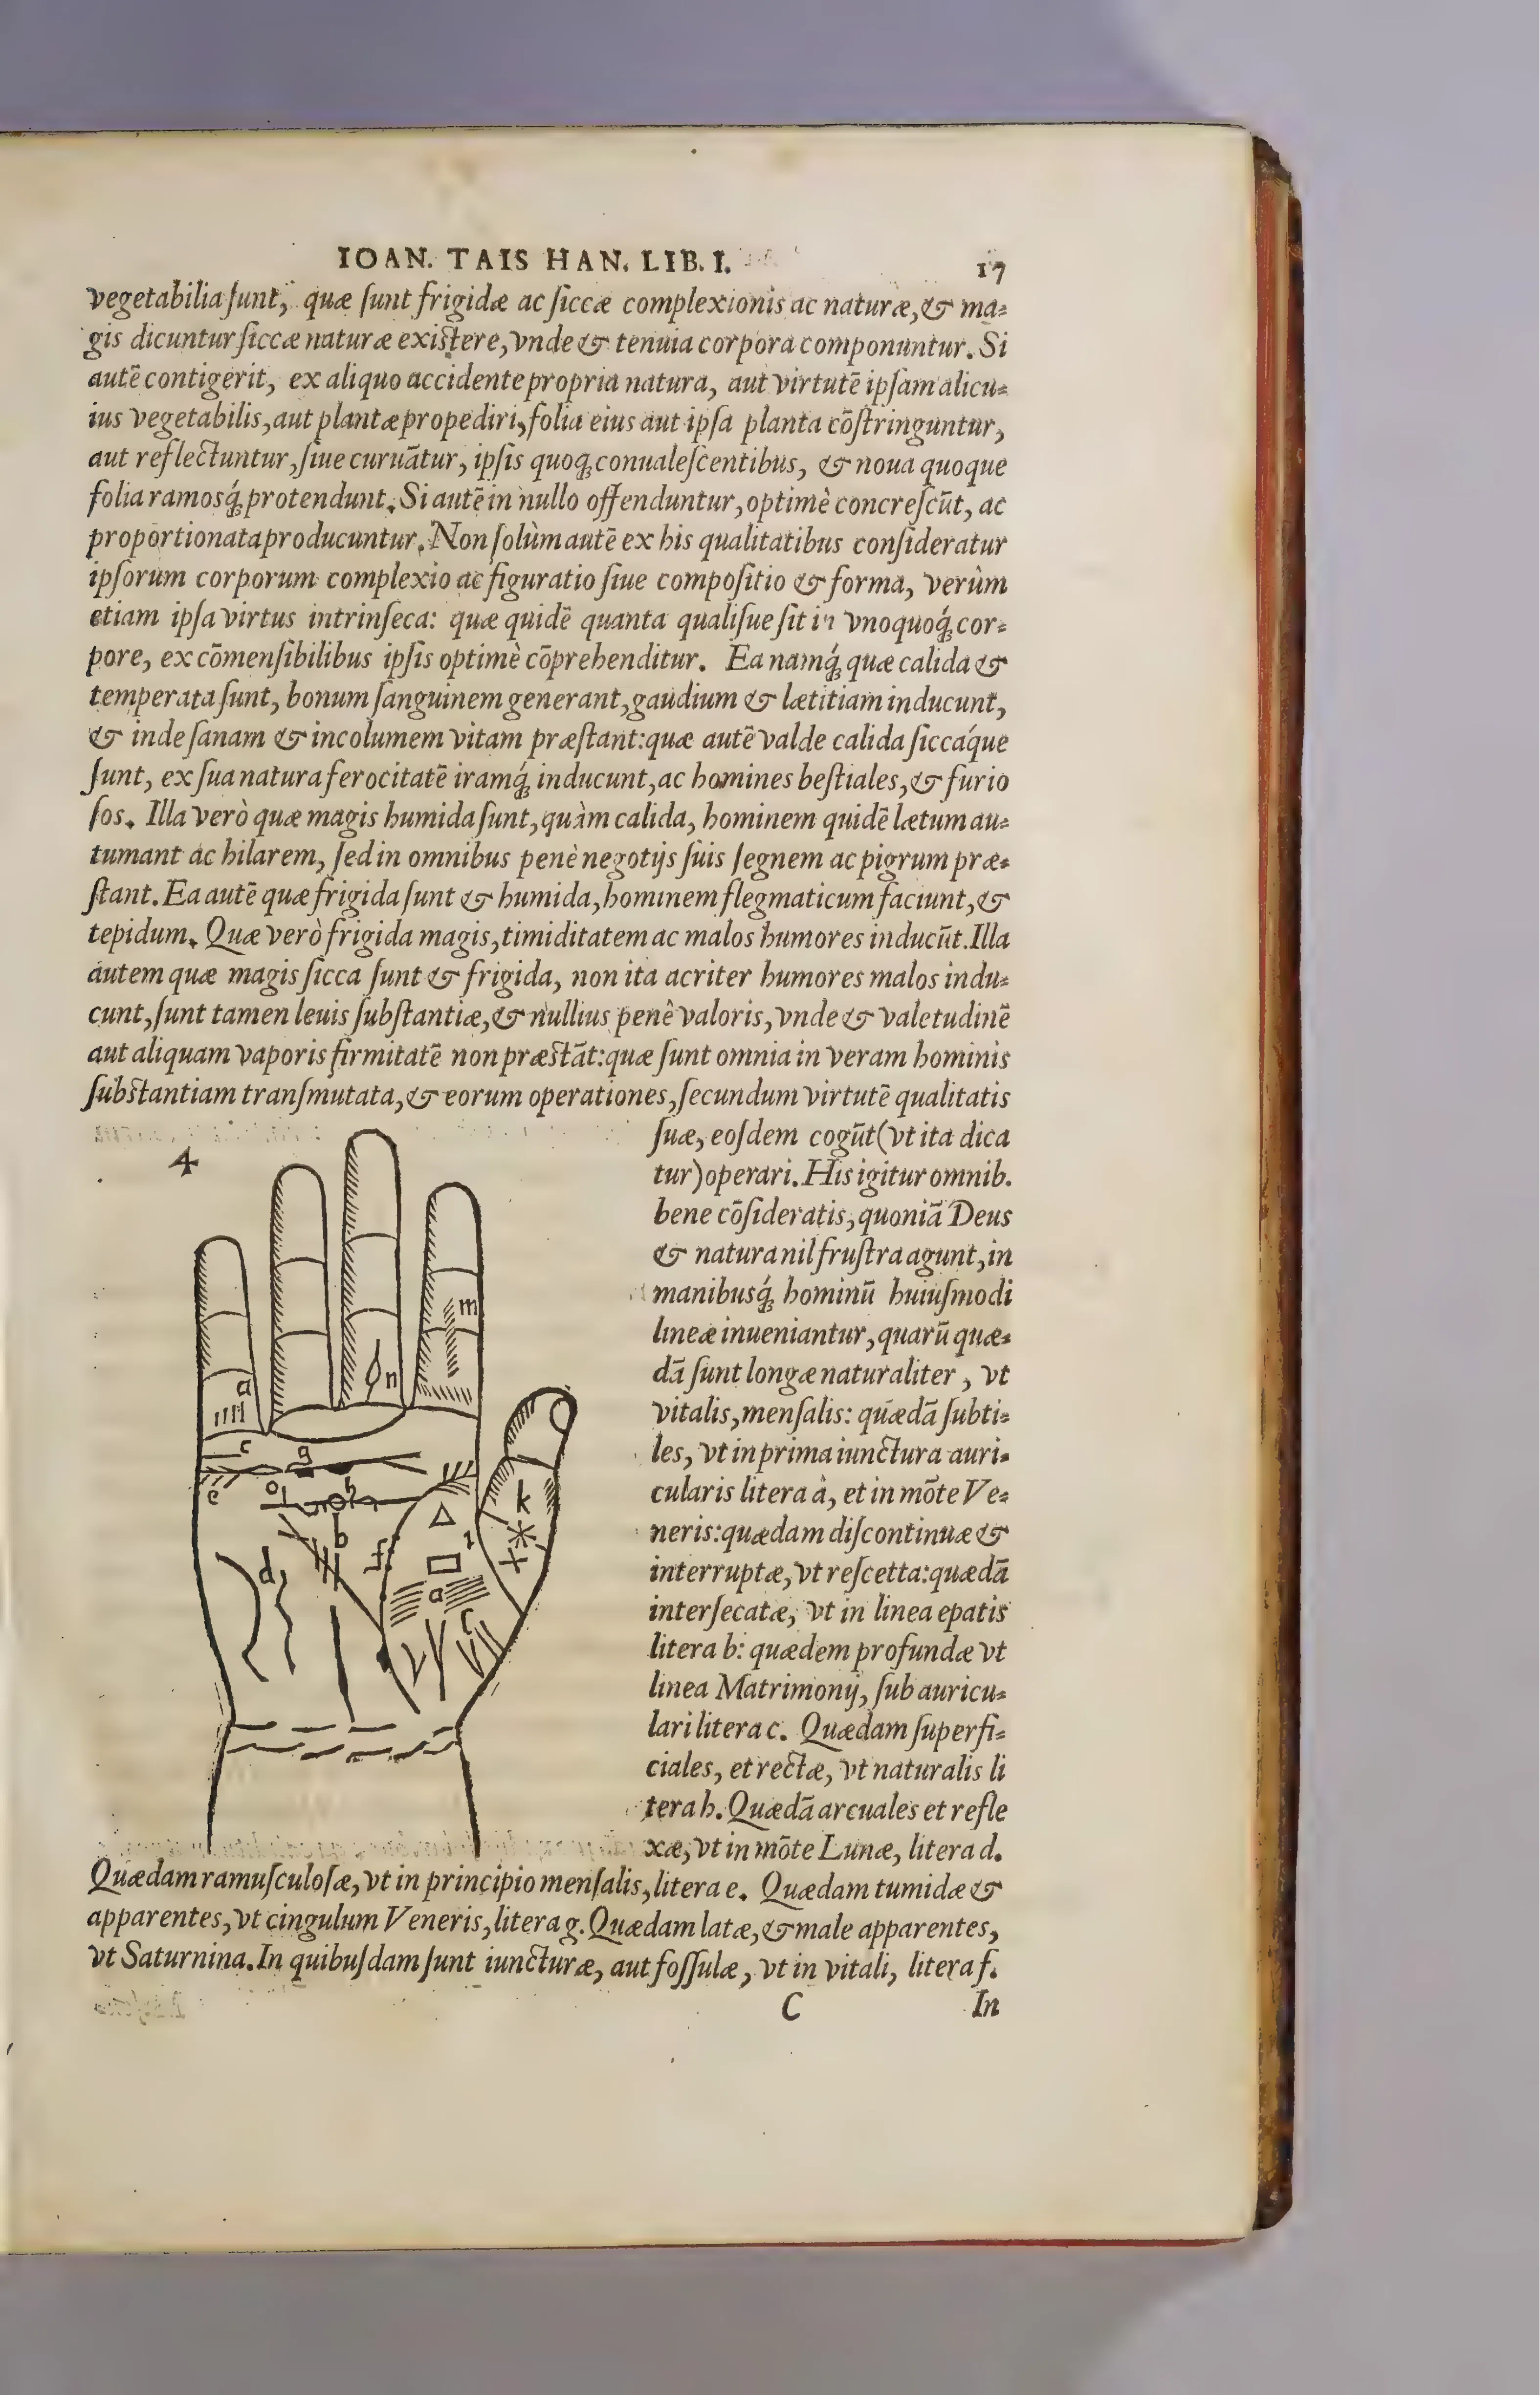 IOAN. TAIS HAN. LIB. I. 17
vegetabilia ſunt, quæ ſunt frigidæ ac ſiccæ complexionis ac naturæ, & ma-
gis dicuntur ſiccæ naturæ exiſtere, vnde & tenuia corpora componuntur. Si
autē contigerit, ex aliquo accidente propria natura, aut virtutē ipſam alicu-
ius vegetabilis, aut plantæ propediri, folia eius aut ipſa planta cōſtringuntur,
aut reflectuntur, ſiue curuātur, ipſis quoq; conualeſcentibus, & noua quoque
folia ramosq́; protendunt. Si autē in nullo offenduntur, optimè concreſcūt, ac
proportionata producuntur. Non ſolùm autē ex his qualitatibus conſideratur
ipſorum corporum complexio ac figuratio ſiue compoſitio & forma, verùm
etiam ipſa virtus intrinſeca: quæ quidē quanta qualiſue ſit in vnoquoq́; cor-
pore, ex cōmenſibilibus ipſis optimè cōprehenditur. Ea namq́; quæ calida &
temperata ſunt, bonum ſanguinem generant, gaudium & lætitiam inducunt,
& inde ſanam & incolumem vitam præſtant: quæ autē valde calida ſiccáque
ſunt, ex ſua natura ferocitatē iramq́; inducunt, ac homines beſtiales, & furio
ſos. Illa verò quæ magis humida ſunt, quàm calida, hominem quidē lætum au-
tumant ac hilarem, ſed in omnibus penè negotijs ſuis ſegnem ac pigrum præ-
ſtant. Ea autē quæ frigida ſunt & humida, hominem flegmaticum faciunt, &
tepidum. Quæ verò frigida magis, timiditatem ac malos humores inducūt. Illa
autem quæ magis ſicca ſunt & frigida, non ita acriter humores malos indu-
cunt, ſunt tamen leuis ſubſtantiæ, & nullius penê valoris, vnde & valetudinē
aut aliquam vaporis firmitatē non præſtāt: quæ ſunt omnia in veram hominis
ſubſtantiam tranſmutata, & eorum operationes, ſecundum virtutē qualitatis
ſuæ, eoſdem cogūt (vt ita dica
tur) operari. His igitur omnib.
bene cōſideratis, quoniā Deus
& natura nil fruſtra agunt, in
manibusq́; hominū huiuſmodi
lineæ inueniantur, quarū quæ-
dā ſunt longæ naturaliter, vt
vitalis, menſalis: quædā ſubti-
les, vt in prima iunctura auri-
cularis litera à, et in mōte Ve-
neris: quædam diſcontinuæ &
interruptæ, vt reſcetta: quædā
interſecatæ, vt in linea epatis
litera b: quædem profundæ vt
linea Matrimonij, ſub auricu-
lari litera c. Quædam ſuperfi-
ciales, et rectæ, vt naturalis li
tera h. Quædā arcuales et refle
xæ, vt in mōte Lunæ, litera d.
4
m
a
n
c
g
e
o
h
k
b
f
i
d
a
c
Quædam ramuſculoſæ, vt in principio menſalis, litera e. Quædam tumidæ &
apparentes, vt cingulum Veneris, litera g. Quædam latæ, & male apparentes,
vt Saturnina. In quibuſdam ſunt iuncturæ, aut foſſulæ, vt in vitali, litera f.
C In